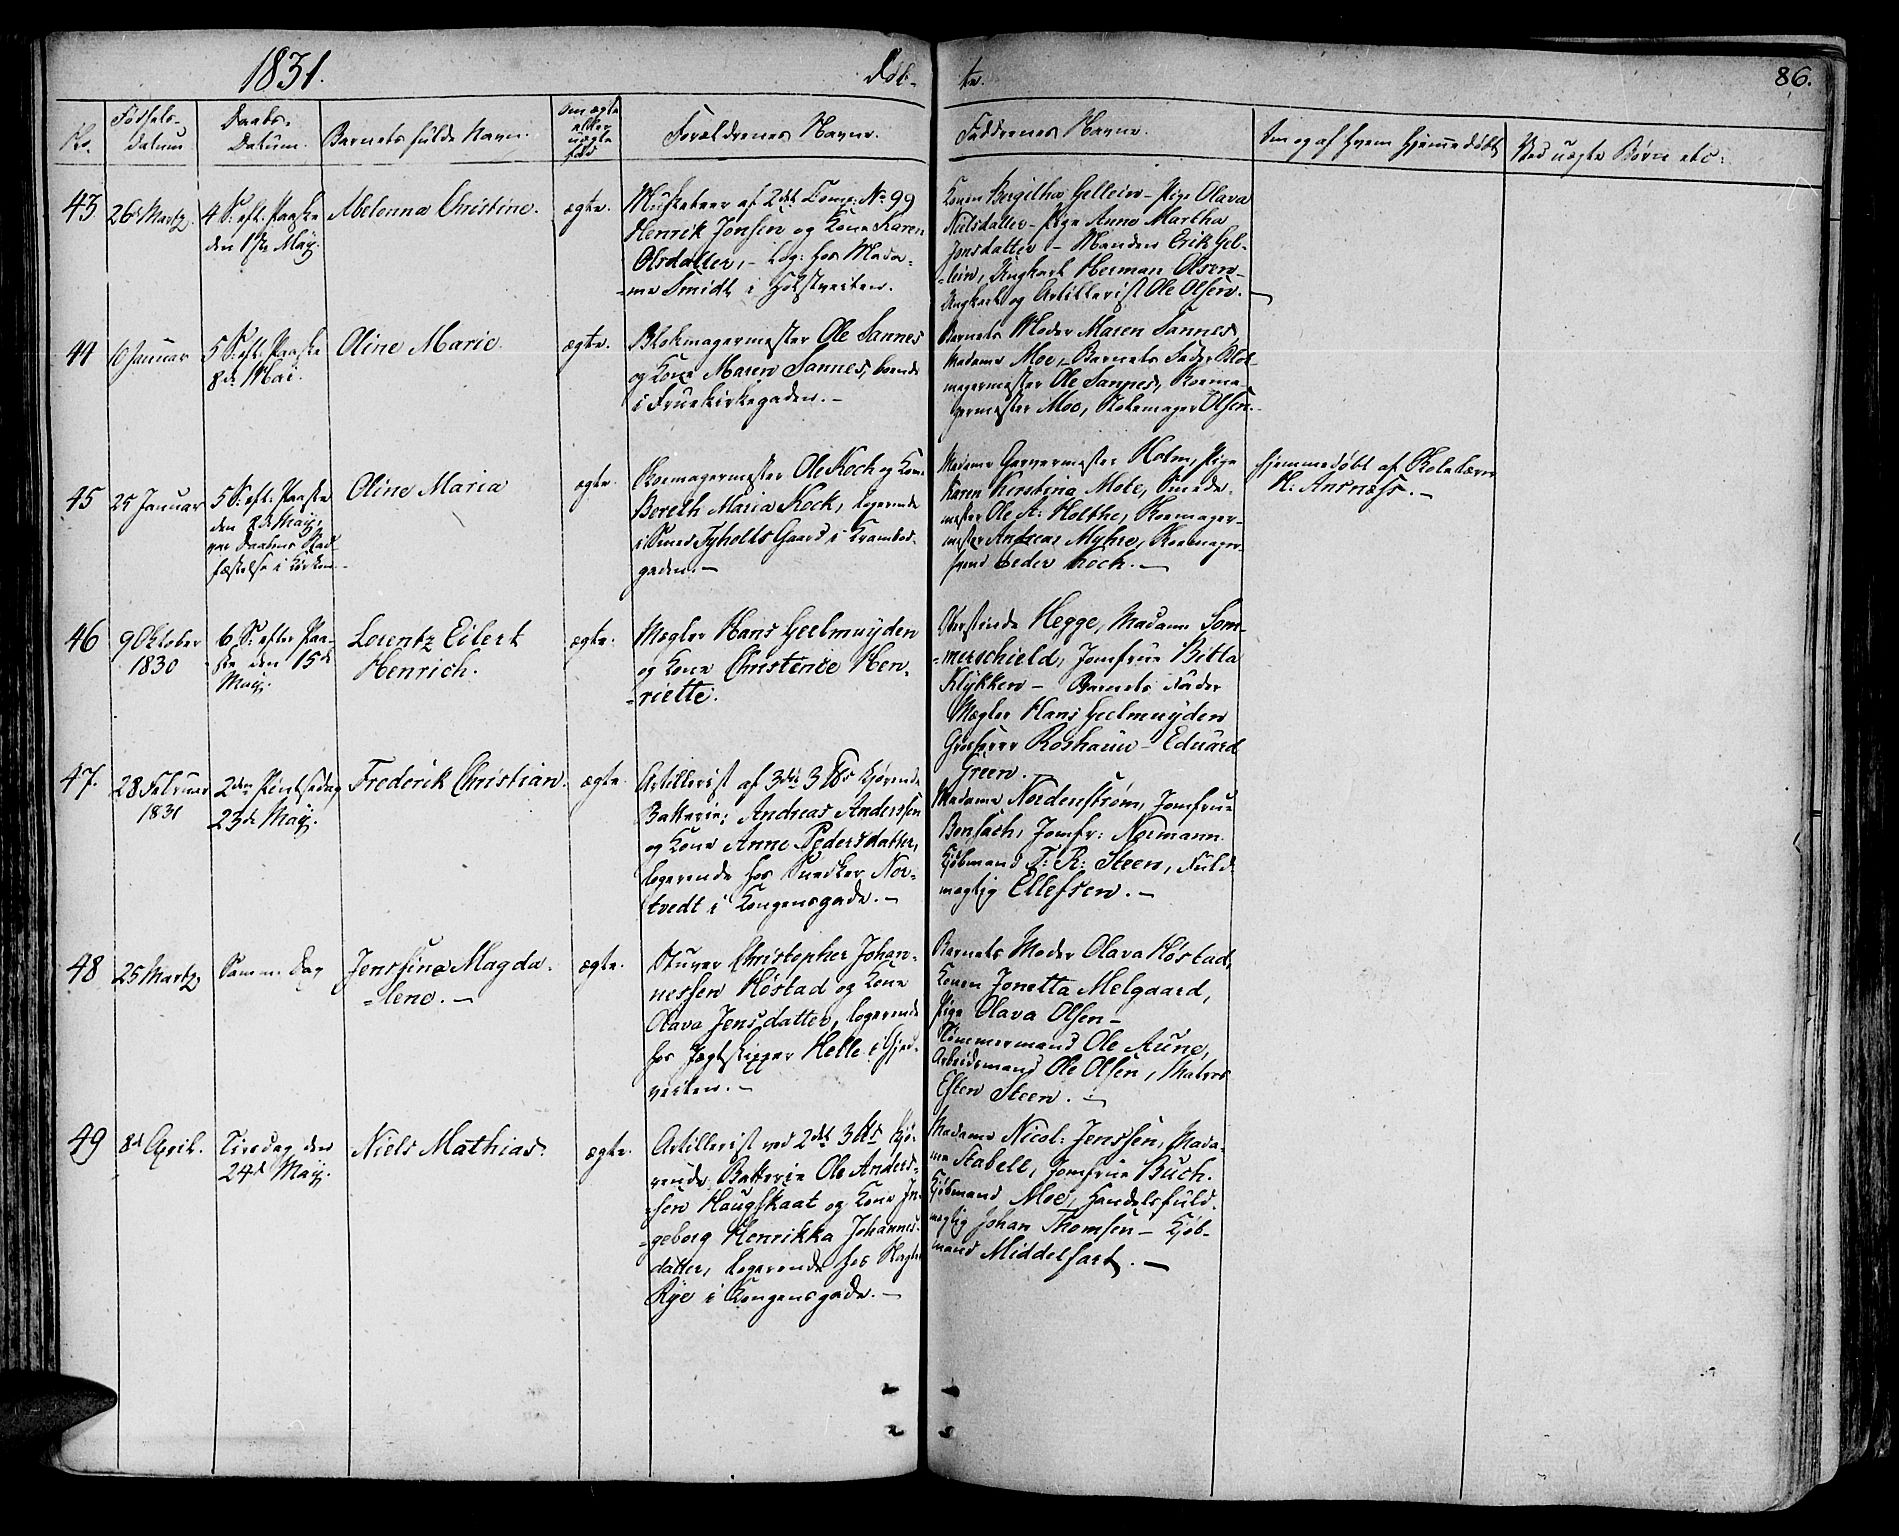 1831.
Døb-
te.
86.
No.
Fødsels-
Datum
Daabs-
Datum.
Barnets fulde Navn.
Om ægte
eller
uægte
fød
Forældrenes Navne.
Faddrenes Navne.
Om og af Hvem Hjemmedøbt
Ved uægte Børn etc:
43
26de Martz.
4 S: eft. Paaske
den 1ste Maÿ.
Melenna Christine.
ægte.
Musketeer af 2det Comp: No 99
Henrik Jonsen og Kone Karen
Olsdatter, - Log: hos Mada-
-me Smidt i Holstveiten.
Konen Bergitha Gellein - Pige Olava
Nielsdatter - Pige Anne Martha
Jonsdatter - Manden Erik Gel-
-lein, Ungkarl Herman Olsen -
Ungkarl og Artillerist Ole Olsen. -
44
10 Januar
5 S: eft. Paaske
8de Mai.
Oline Marie.
ægte.
Blokmagermester Ole Sannes
og Kone Maren Sannes, boende
i Fruekirkegaden. -
Barnets Moder Maren Sannes
Madame Moe, - Barnets Fader Blok-
magermester Ole Sannes, Skoma-
germester Moe, Blokmager Olsen. -
45
25 Januar
5 S: eft. Paaske
den 8de Maÿ,
var Daabens Stad-
fæstelse i Kirken. -
Oline Maria
ægte.
Skomagermester Ole Kock og Kone
Bereth Maria Kock, logerende
i Smed Tyholts Gaard i Krambod-
gaden. -
Madame Garvermester Holm, Pige
Karen Kerstina Mole, Smede-
mester Ole A: Holthe, Skomager-
mester Andreas Myhre, Skomager-
svend Peder Kock. -
Hjemmedøbt af Skolelærer
H: Aasnæss. -
46
9 Oktober
1830
6 S: efter Paa-
ske den 15de
Maÿ.
Lorentz Eilert
Henrich.
ægte.
Mægler Hans Geelmuÿden
og Kone Christence Hen-
-riette.
Oberstinde Hegge, Madame Som-
-merschield, Jomfrue Bitla
Klÿkken - Barnets Fader
Mægler Hans Geelmuÿden
Grosserer Roshauw - Eduard
Green.
47.
28 Februar
1831
2den Pintsedag
23de Maÿ.
Frederik Christian.
ægte.
Artillerist af 3die 3 Pds kjørende
Batterie: Andreas Anderssen
og Kone Anne Pedersdatter,
logerende hos Snedker Nor-
tvedt i Kongensgade. -
Madame Nordenstrøm, Jomfrue
Bensach, Jomfr: Normann
Kjøbmand T: R: Steen, Fuld-
mægtig Ellefsen. -
48
25 Martz
Samme Dag
Jenssine Magda-
-lene. -
ægte.
Stuver Christopher Johan-
nessen Høstad og Kone
Olava Jensdatter, logerende
hos Jægtskipper Helle i Hjed-
veiten. -
Barnets Moder Olava Høstad,
Konen Jonetta Melgaard,
Pige Olava Olsen -
Tømmermand Ole Aune,
Arbeidsmand Ole Olsen, Matros
Esten Steen. -
49
8de April.
Tirsdag den
24de Maÿ.
Niels Mathias.
ægte.
Artillerist ved 2det 3 Pds Kjø-
rende Batterie Ole Anders-
-sen Haugskaat og Kone In-
-geborg Henrikka Johannes-
datter, logerende hos Slagter
Rÿe i Kongensgade. -
Madame Nicol: Jenssen, Mada-
me Stabell, Jomfrue Buch.
Kjøbmand Moe, Handelsfuld-
mægtig Johan Thomsen - Kjøb-
mand Middelfart. -